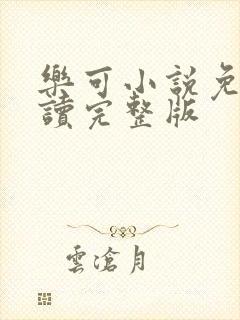 樂可小說免
讀完整版
雲滄月